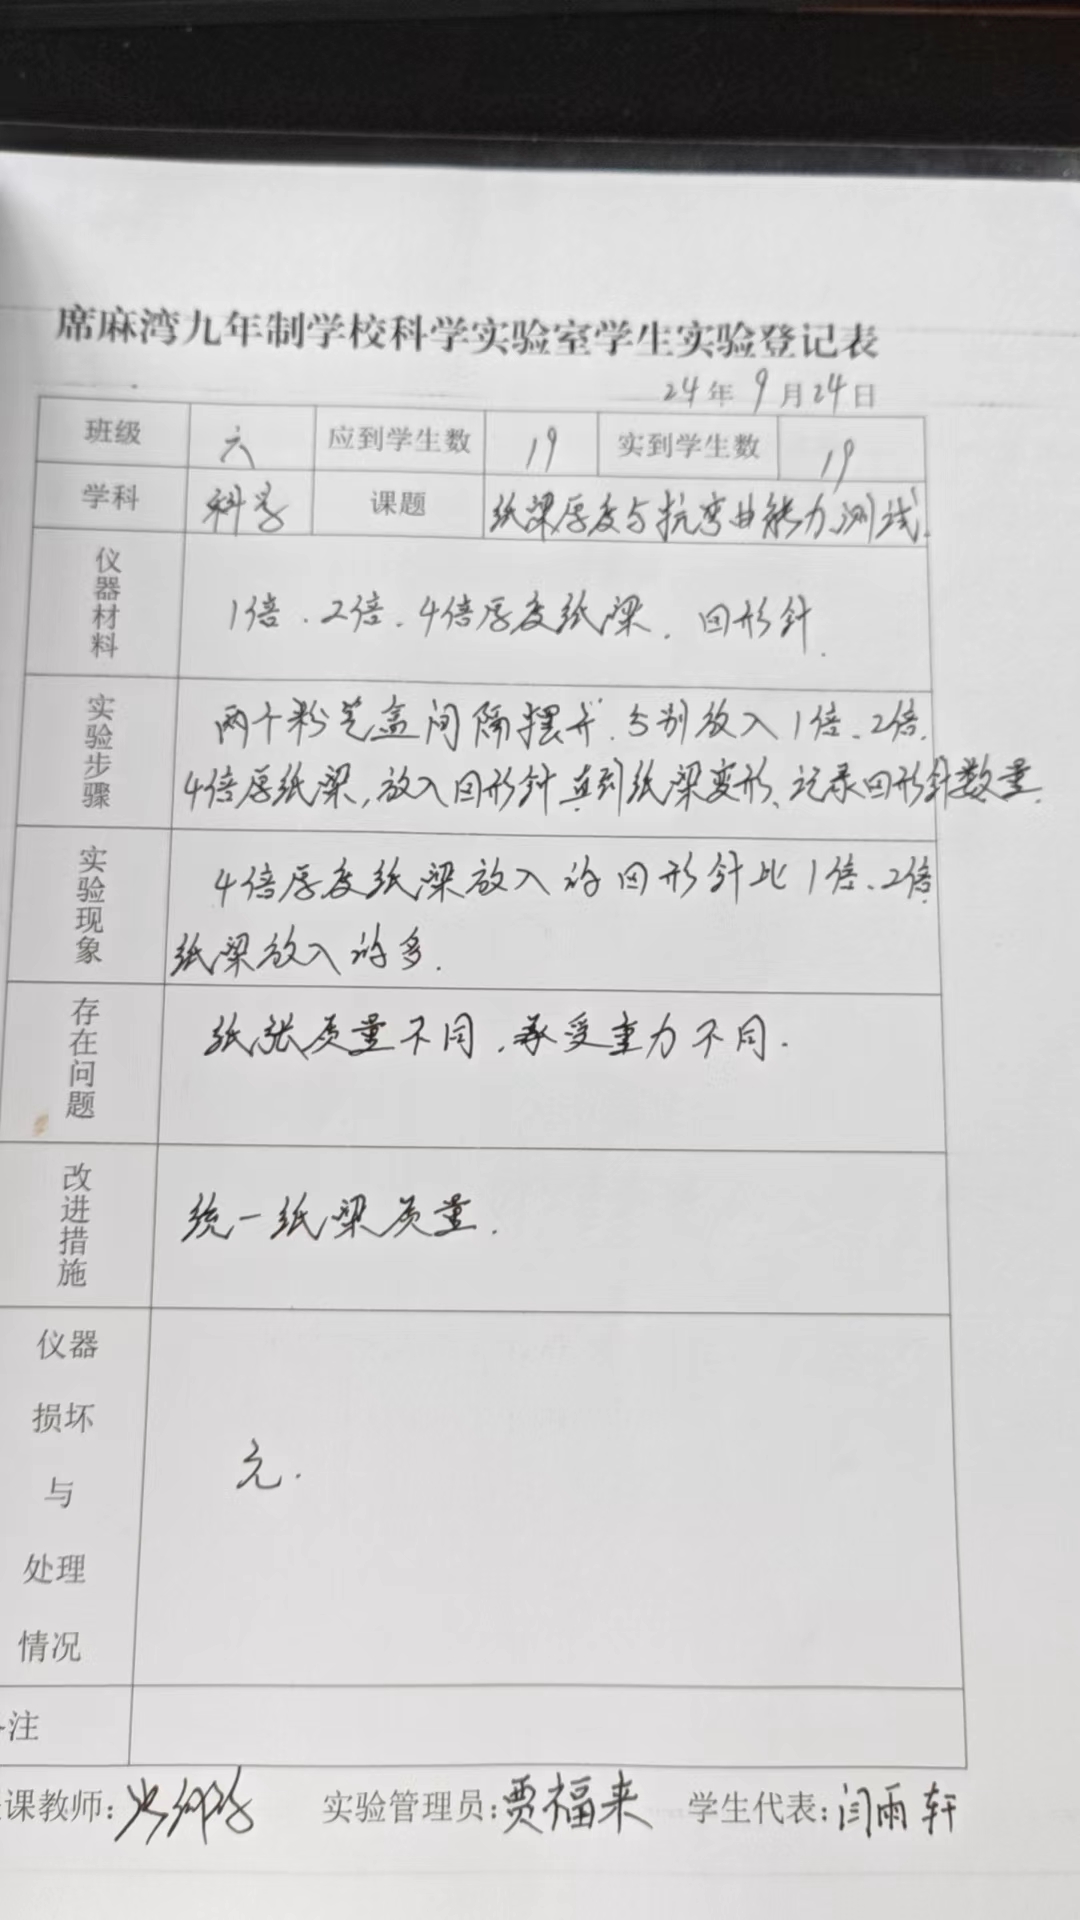 席麻湾九年制学校科学实验室学生实验登记表
24年9月24日
班级 六 应到学生数 19 实到学生数 19
学科 科学 课题 纸梁厚度与抗弯曲能力测试.
仪器材料 1倍、2倍、4倍厚度纸梁、回形针.
实验步骤 两个粉笔盒间隔摆开、分别放入1倍、2倍、
4倍厚纸梁,放入回形针直到纸梁变形、记录回形针数量.
实验现象 4倍厚度纸梁放入的回形针比1倍、2倍
纸梁放入的多.
存在问题 纸张质量不同,承受重力不同.
改进措施 统一纸梁质量.
仪器
损坏
与
处理
情况
无.
注
课教师: 实验管理员:贾福来 学生代表:闫雨轩